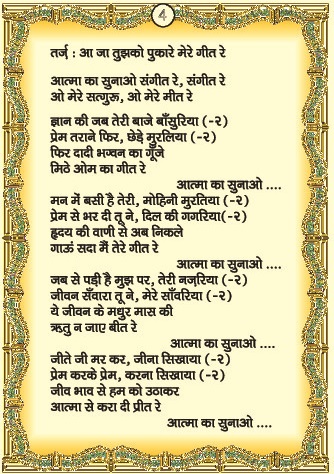 4
तर्ज़ : आ जा तुझको पुकारे मेरे गीत रे
आत्मा का सुनाओ संगीत रे, संगीत रे
ओ मेरे सत्गुरू, ओ मेरे मीत रे
ज्ञान की जब तेरी बाजे बाँसुरिया (-२)
प्रेम तराने फिर, छेड़े मुरलिया (-२)
फिर दादी भगवन का गूँजे
मिठे ओम का गीत रे
आत्मा का सुनाओ ....
मन में बसी है तेरी, मोहिनी मुरतिया (-२)
प्रेम से भर दी तू ने, दिल की गगरिया(-२)
हृदय की वाणी से अब निकले
गाऊं सदा मैं तेरे गीत रे
आत्मा का सुनाओ ....
जब से पड़ी है मुझ पर, तेरी नज़रिया (-२)
जीवन सँवारा तू ने, मेरे साँवरिया (-२)
ये जीवन के मधुर मास की
ऋतु न जाए बीत रे
आत्मा का सुनाओ ....
जीते जी मर कर, जीना सिखाया (-२)
प्रेम करके प्रेम, करना सिखाया (-२)
जीव भाव से हम को उठाकर
आत्मा से करा दी प्रीत रे
आत्मा का सुनाओ ....